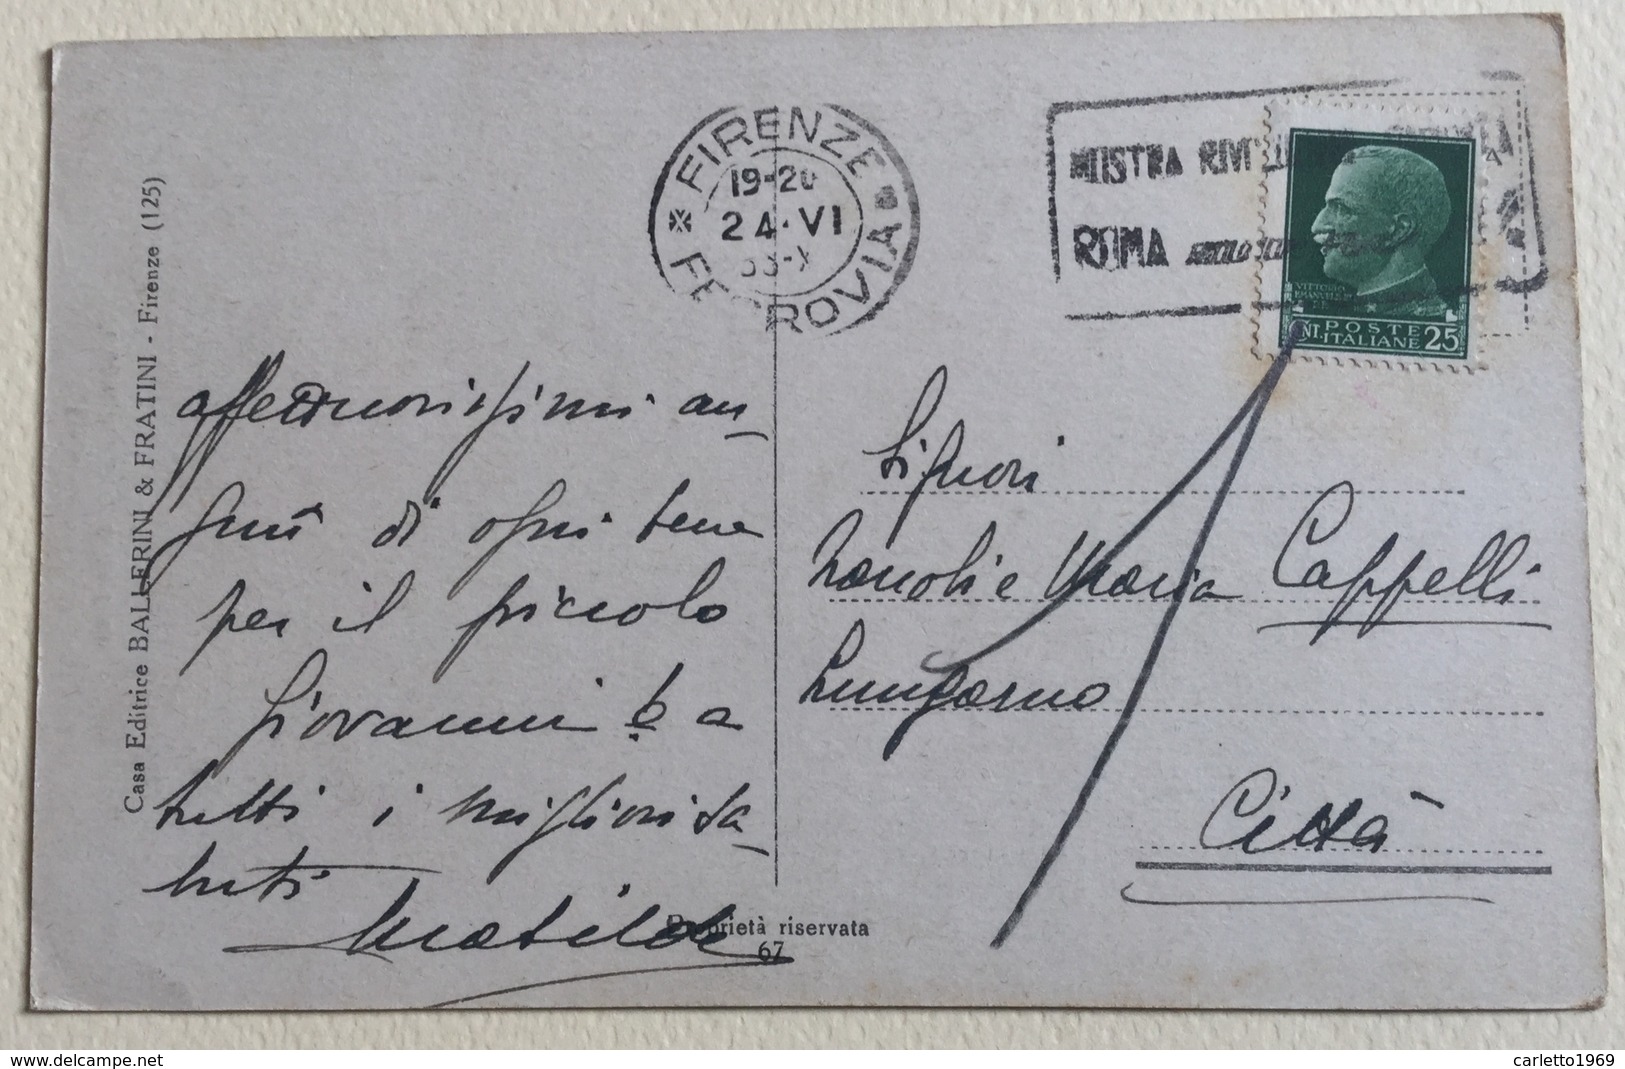 FIRENZE
19-20
24·VI
33-X
FERROVIA
MOSTRA
ROMA
VITTORIO
POSTE
ITALIANE 25
CENT.
Casa Editrice BALLERINI & FRATINI - Firenze (125)
affettuosissimi au-
guri di ogni bene
per il piccolo
Giovanni e a
tutti i migliori sa-
luti
Matilde
Signori
Maria Cappelli
Lungarno
Città
Proprietà riservata
67
delcampe.net
carletto1969